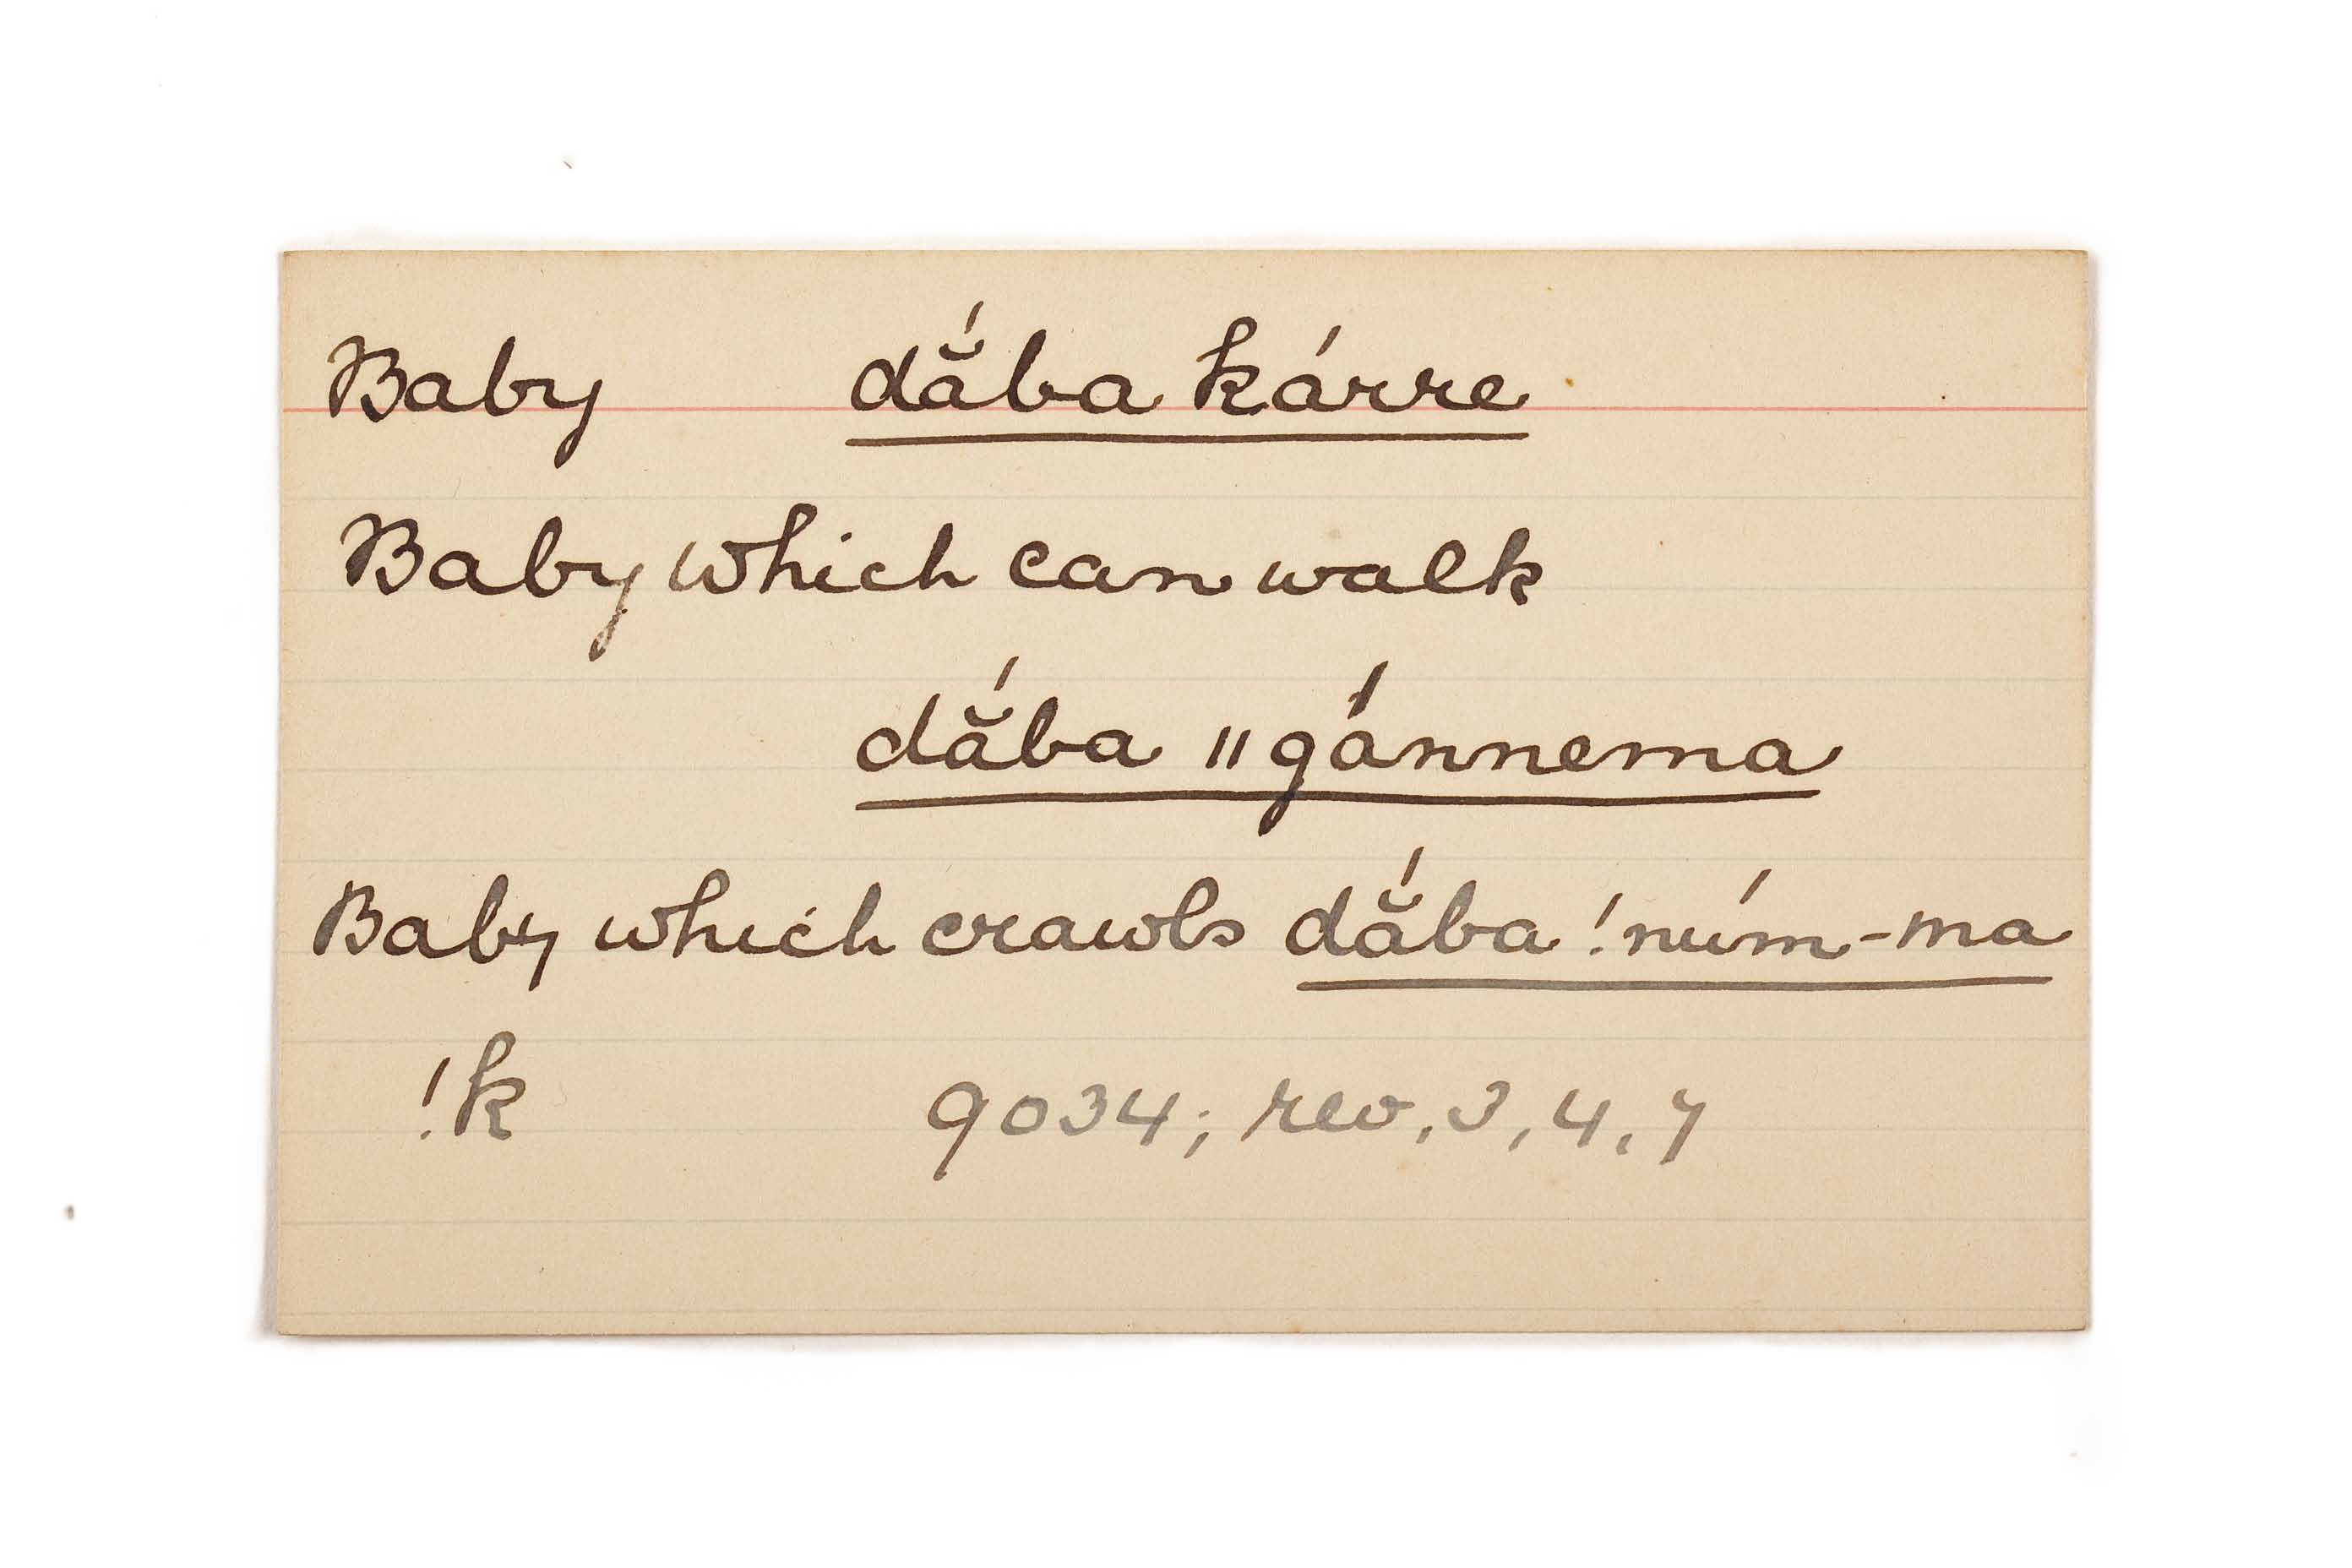 Baby dắba kárre
Baby which can walk
dắba ǁgánnema
Baby which crawls dắba !núm-ma
!k 9034; rev. 3, 4, 7